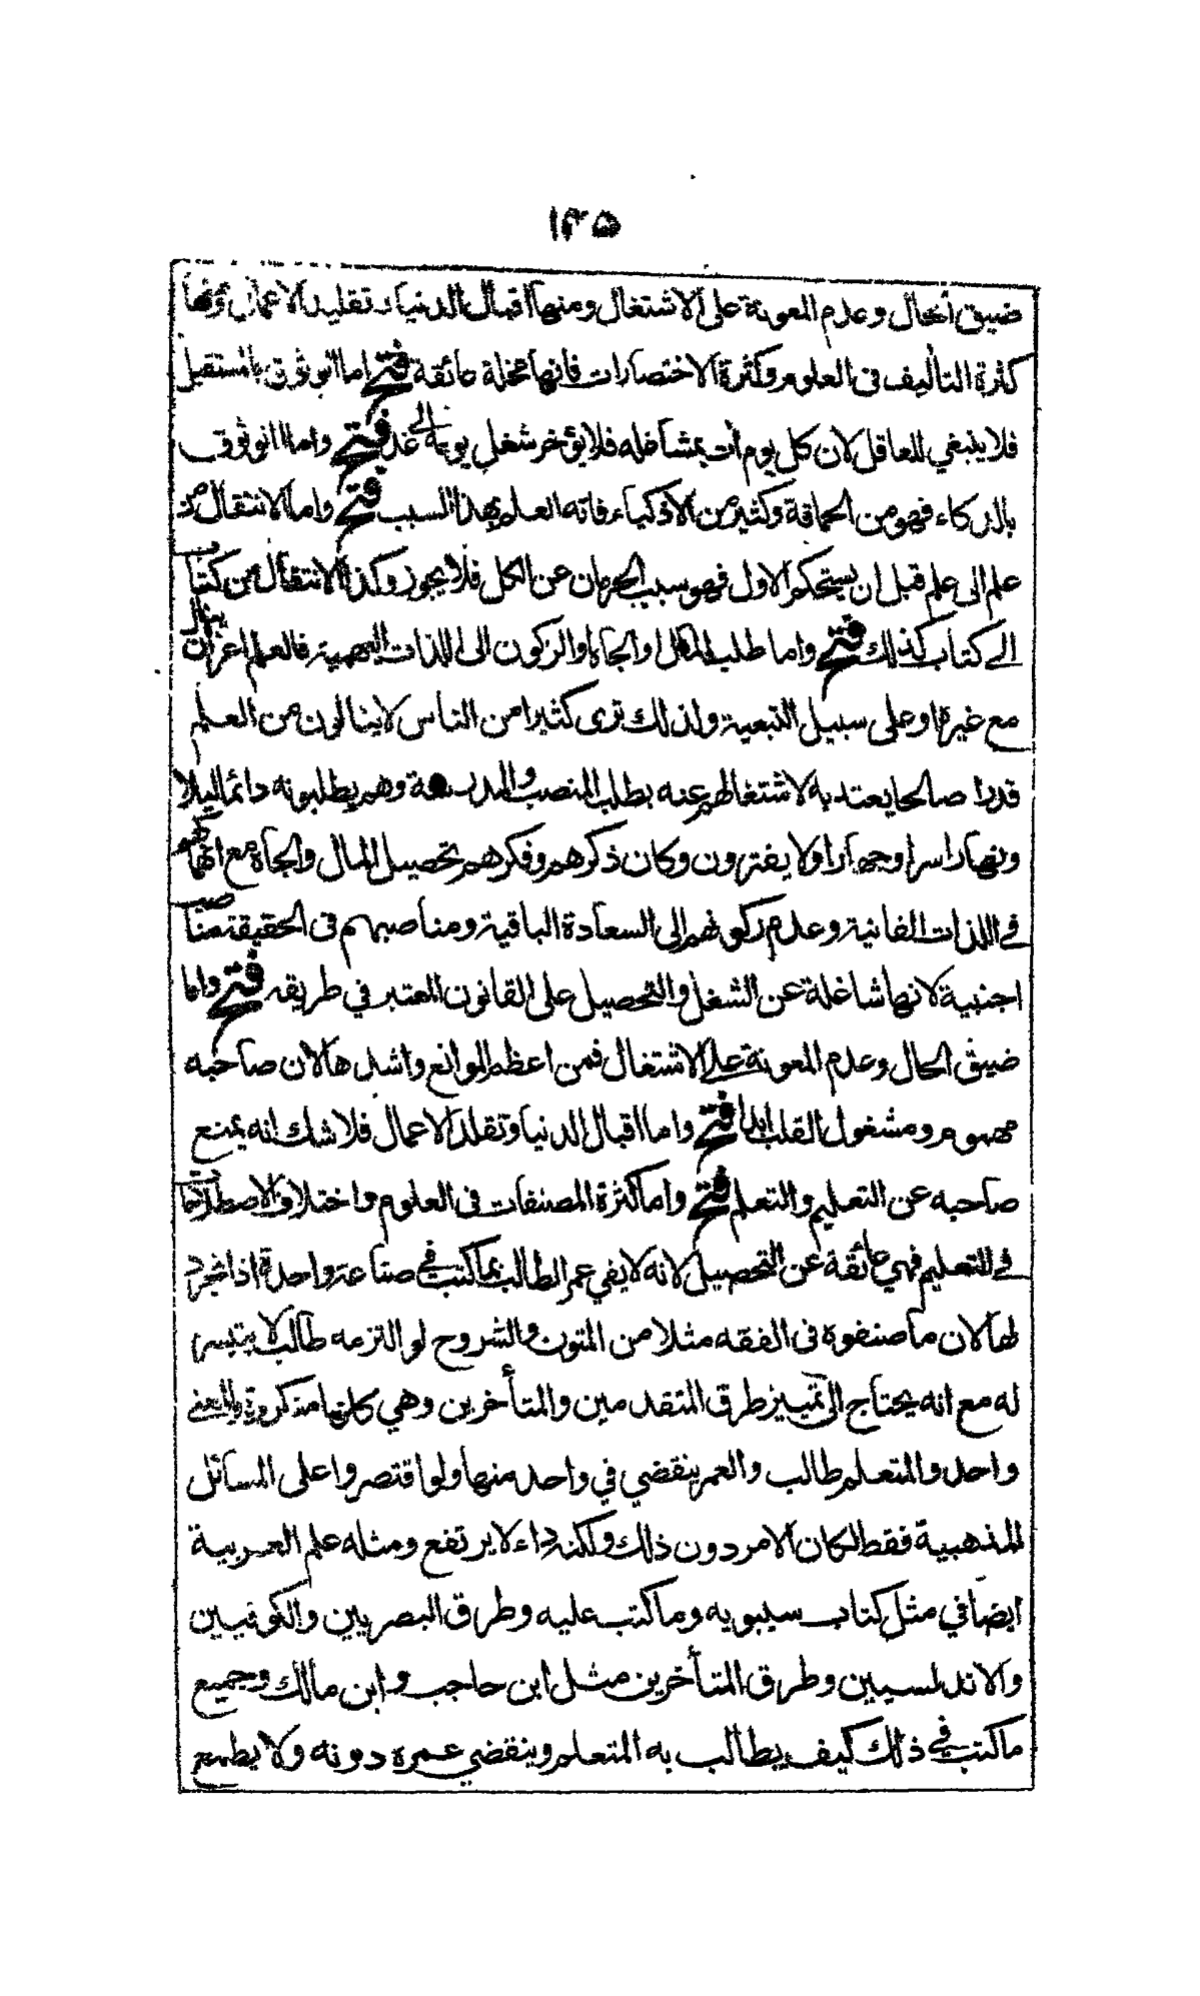 ١٣٥
ضيق الحال وعدم المعونة على الاشتغال ومنها اقبال الدنيا وتقليد الاعمال ومنها
كثرة التأليف فى العلوم وكثرة الاختصارات فانها مخلة عائقة فتح اما الوثوق بالمستقبل
فلا ينبغي للعاقل لان كل يوم آت بمشاغله فلا يؤخر شغل يومه الى غد فتح واما الوثوق
بالذكاء فهو من الحماقة وكثير من الاذكياء فاته العلم بهذا السبب فتح واما الانتقال من
علم الى علم قبل ان يستحكم الاول فهو سبب الحرمان عن الكل فلا يجوز وكذا الانتقال من كتاب
الى كتاب كذلك فتح واما طلب المال والجاه او الركون الى اللذات البهمية فالعلم اعز ان ينال
مع غيره او على سبيل التبعية ولذلك ترى كثيرا من الناس لا ينالون من العلم
قدرا صالحا يعتد به لاشتغالهم عنه بطلب المنصب والمدرسة وهم يطلبونه دائما ليلا
ونهارا سرا وجهارا ولا يفترون وكان ذكرهم وفكرهم تحصيل المال والجاه مع انهماكهم
في اللذات الفانية وعدم ركونهم الى السعادة الباقية ومناصبهم فى الحقيقة مناصب
اجنبية لانها شاغلة عن الشغل والتحصيل على القانون المعتبر في طريقه فتح واما
ضيق الحال وعدم المعونة على الاشتغال فمن اعظم الموانع واشدها لان صاحبه
مهموم ومشغول القلب ابدا فتح واما اقبال الدنيا وتقلد الاعمال فلا شك انه يمنع
صاحبه عن التعليم والتعلم فتح واما كثرة المصنفات فى العلوم واختلاف الاصطلاحات
في التعليم فهي عائقة عن التحصيل لانه لا يفي عمر الطالب بما كتب في صناعة واحدة اذا تجرد
لها لان ما صنفوه فى الفقه مثلا من المتون والشروح لو التزمه طالب لا يتيسر
له مع انه يحتاج الى تمييز طرق المتقدمين والمتأخرين وهي كلها متكررة والمعنى
واحد والمتعلم طالب والعمر ينقضي في واحد منها ولو اقتصروا على المسائل
المذهبية فقط لكان الامر دون ذلك ولكنه داء لا يرتفع ومثله علم العربية
ايضا في مثل كتاب سيبويه وما كتب عليه وطرق البصريين والكوفيين
والاندلسيين وطرق المتأخرين مثل ابن حاجب وابن مالك وجميع
ما كتب في ذلك كيف يطالب به المتعلم وينقضي عمره دونه ولا يطمع